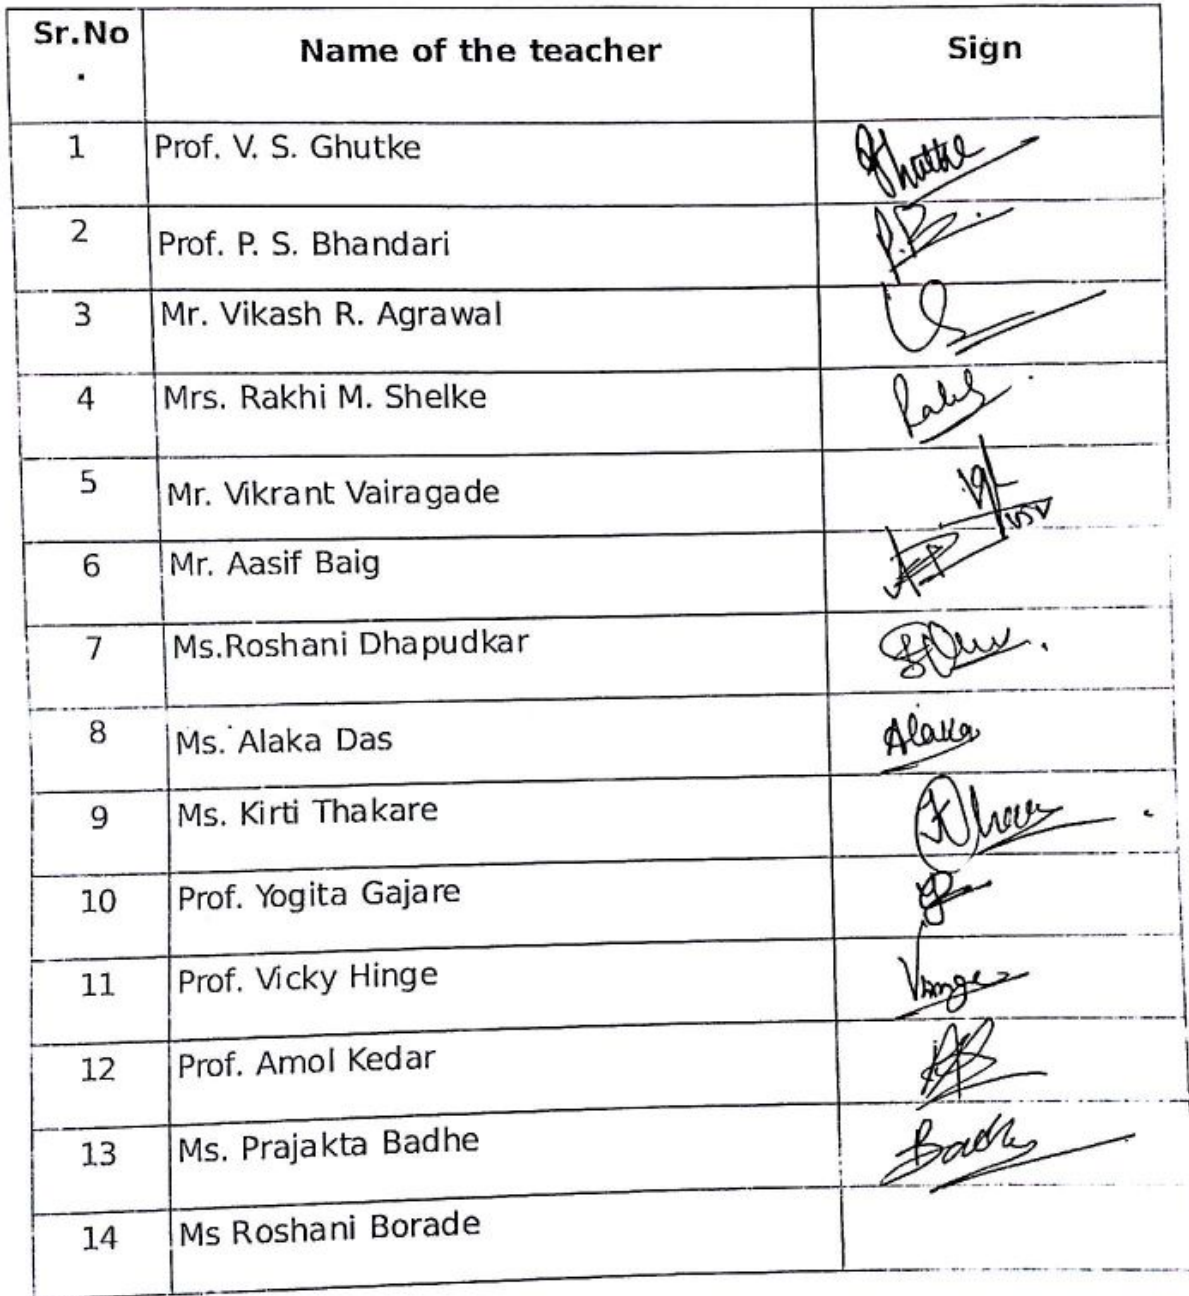 Sr.No
.
Name of the teacher
Sign
1 Prof. V. S. Ghutke
2 Prof. P. S. Bhandari
3 Mr. Vikash R. Agrawal
4 Mrs. Rakhi M. Shelke
5 Mr. Vikrant Vairagade
6 Mr. Aasif Baig
7 Ms.Roshani Dhapudkar
8 Ms. Alaka Das Alaka
9 Ms. Kirti Thakare
10 Prof. Yogita Gajare
11 Prof. Vicky Hinge
12 Prof. Amol Kedar
13 Ms. Prajakta Badhe
14 Ms Roshani Borade